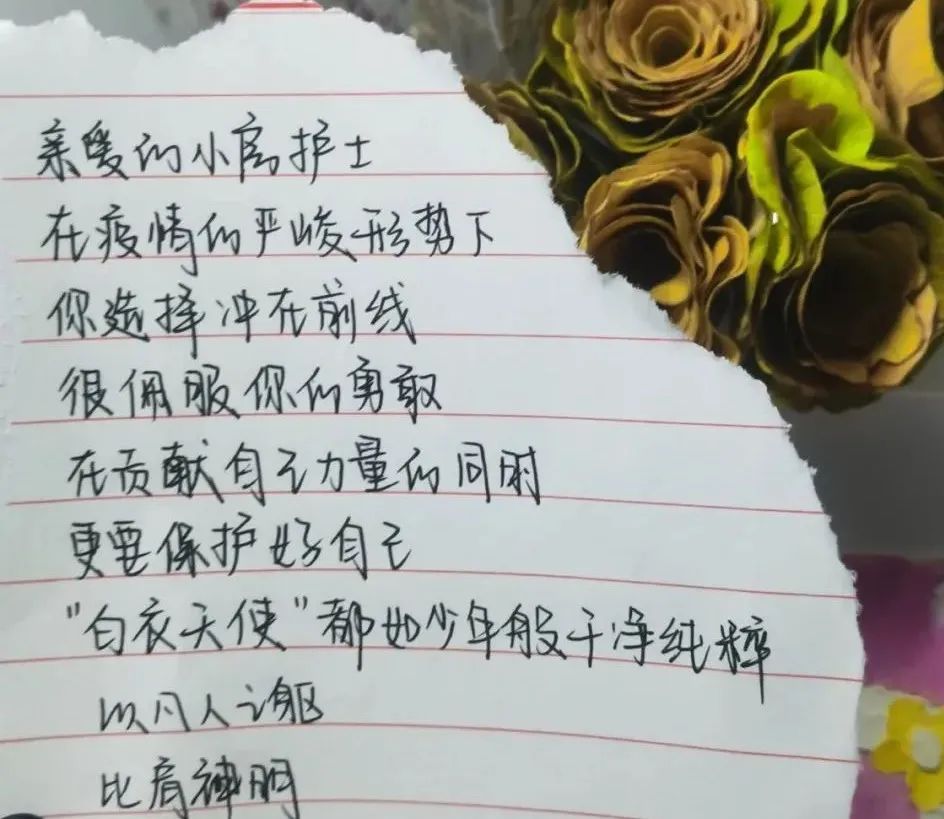 亲爱的小高护士
在疫情的严峻形势下
你选择冲在前线
很佩服你的勇敢
在贡献自己力量的同时
更要保护好自己
"白衣天使"都如少年般干净纯粹
以凡人之躯
比肩神明